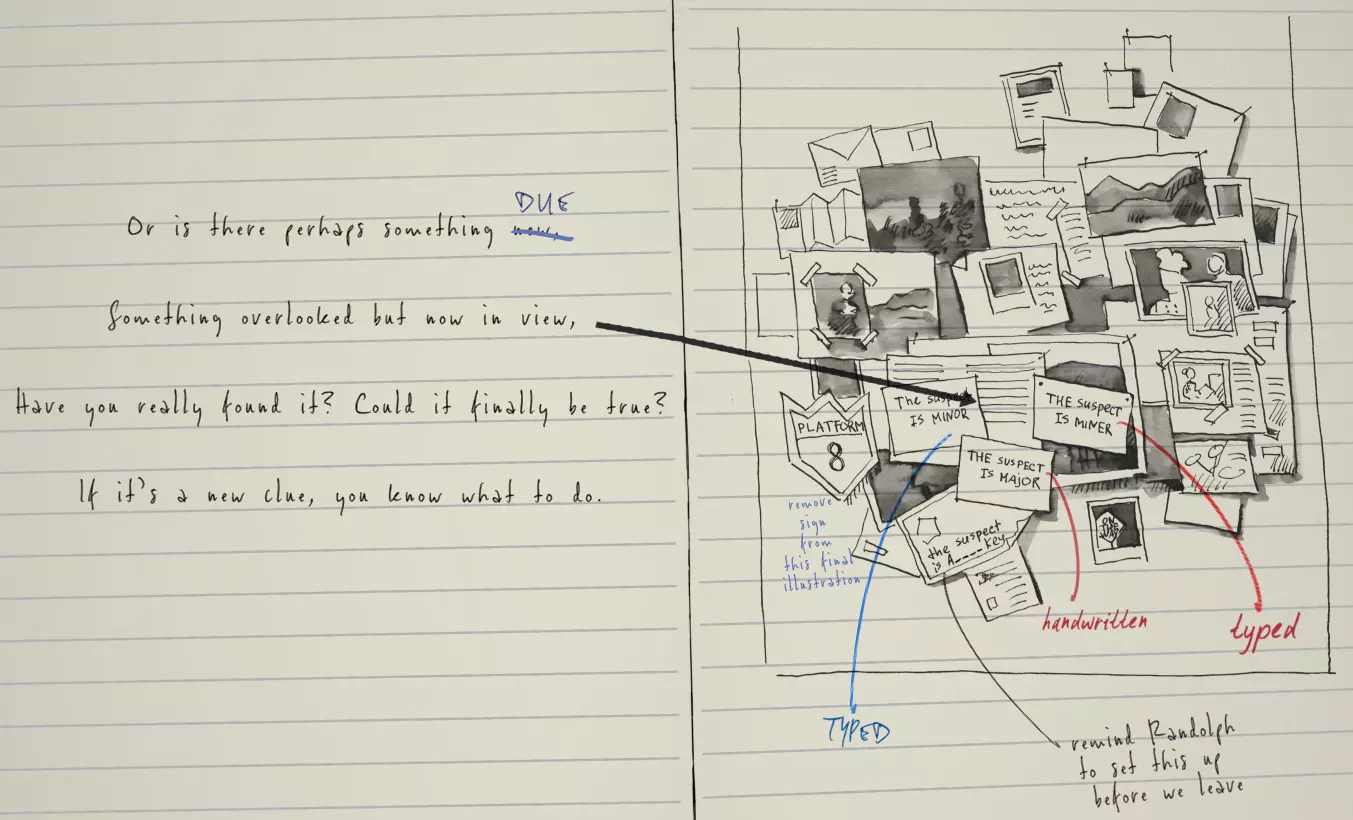 DUE
Or is there perhaps something now.
Something overlooked but now in view,
Have you really found it? Could it finally be true?
If it's a new clue, you know what to do.
The suspect
IS MINOR
THE SUSPECT
IS MINER
PLATFORM
8
THE SUSPECT
IS MAJOR
the suspect
is A____KEY
remove
sign
from
this final
illustration
handwritten
typed
TYPED
remind Randolph
to set this up
before we leave